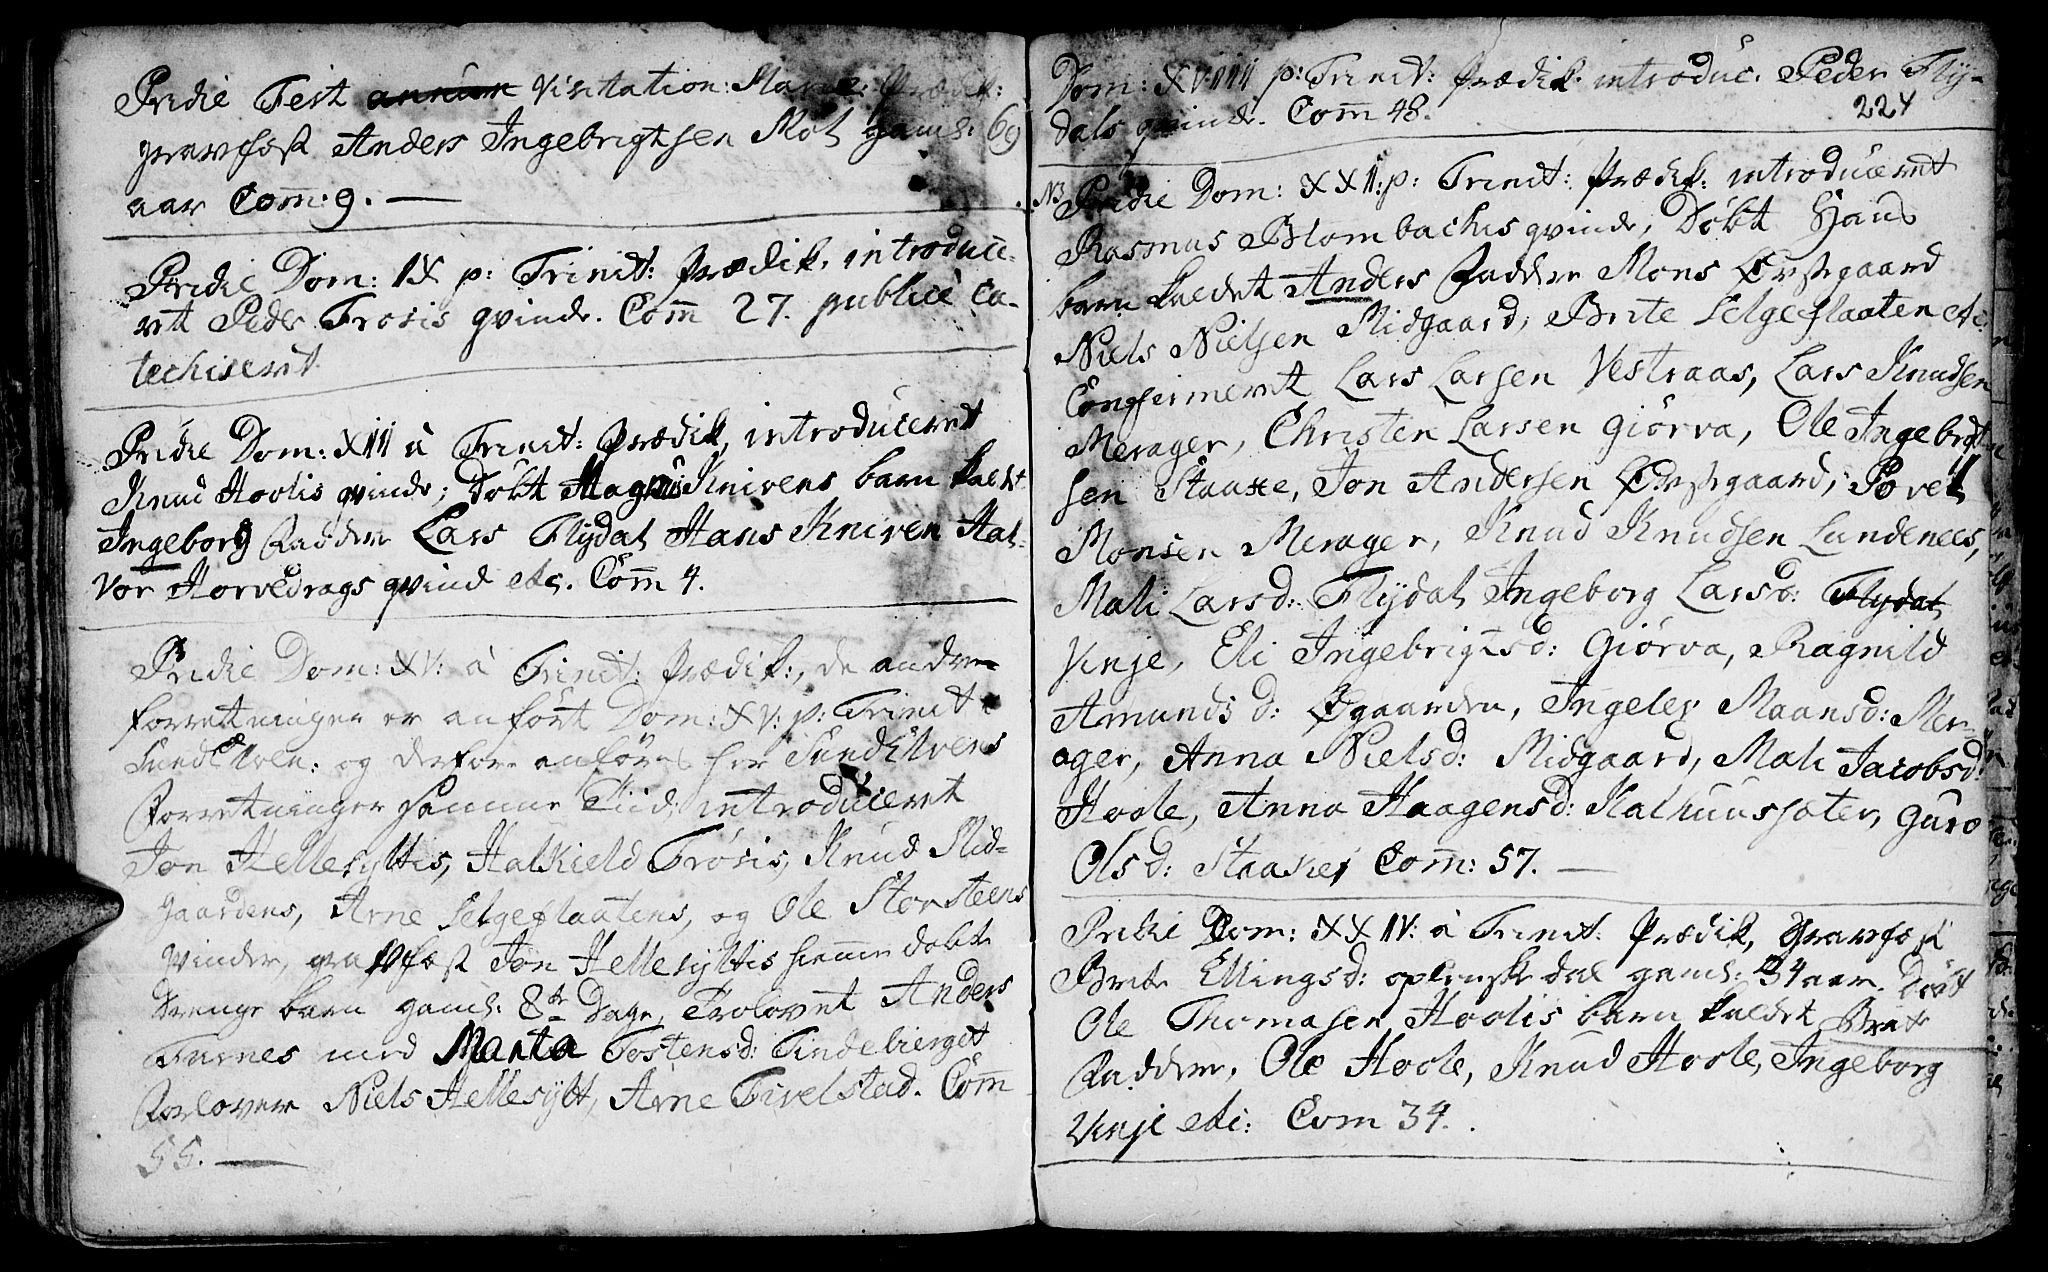 Pridie Fest annun Visitation: Mariæ: Prædik:
gravfæst Anders Ingebrigtsen Mot gaml: 69
aar Com̄: 9. —
Pridie Dom: IX p: Trinit: Prædik, introduce-
ret Peder Frøsis qvinde. Com̄ 27. publice ca-
techiseret
Pridie Dom: XIII à Trinit: Prædik, introduceret
Knud Hoolis qvinde; Døbt Magnus Knivens barn kaldt
Ingeborg Faddere Lars Flydal Hans Kniven Hal-
vor Horvedrags qvind etc. Com̄ 4.
Pridie Dom: XV: à Trinit: Prædik:, de andre
forretninger er anført Dom: XV: p: Trinit:
og derfore anføres her Sundelvens
Forretninger samme Tiid, introduceret
Jon Hellesyltis, Halkield Frøsis, Knud Mid-
gaardens, Arne Selgeflaatens, og Ole Storsteens
qvinder, gravfæst Jon Hellesyltis hiemme døbte
drenge barn gaml: 8te Dage, Trolovet Anders
Furnes med Marta Tostensd: Tindebierget
Forlovere Niels Hellesylt, Arne Tivelstad. Com̄
55. —
Dom: XVIII p: Trinit: Prædik. introduc. Peder Fly-
dals qvinde. Com̄ 48.
224
N3 Pridie Dom: XXII: p: Trinit: Prædik: introduceret
Rasmus Blombachis qvinde, Døbt Hans
barn kaldet Anders Faddere Mons Øvstegaard
Niels Nielsen Midgaard, Brite Selgeflaaten etc:
Confirmeret Lars Larsen Vestraas, Lars Knudsen
Merager, Christen Larsen Giørva, Ole Ingebrigt-
sen Staake, Jon Andersen Øvstegaard, Povel
Monsen Merager, Knud Knudsen Lundenees,
Mali Larsd: Flydal, Ingeborg Larsd: Flydal
Vinje, Eli Ingebrigtsd: Giørva, Ragnild
Amundsd: Øgaarden, Ingeler Maansd: Mer-
ager, Anna Nielsd: Midgaard, Mali Jacobsd:
Hoole, Anna Haagensd: Kalhuussæter, Guro
Olsd: Staake, Com̄: 57. —
Pridie Dom: XXIV: à Trinit: Prædik, Gravfæst
Brite Ellingsd: oplenskedal gaml: 34 aar. Døbt
Ole Thomasen Hoolis barn kaldet Brite
Faddere, Ole Hoole, Knud Hoole, Ingeborg
Vinje etc: Com 34.